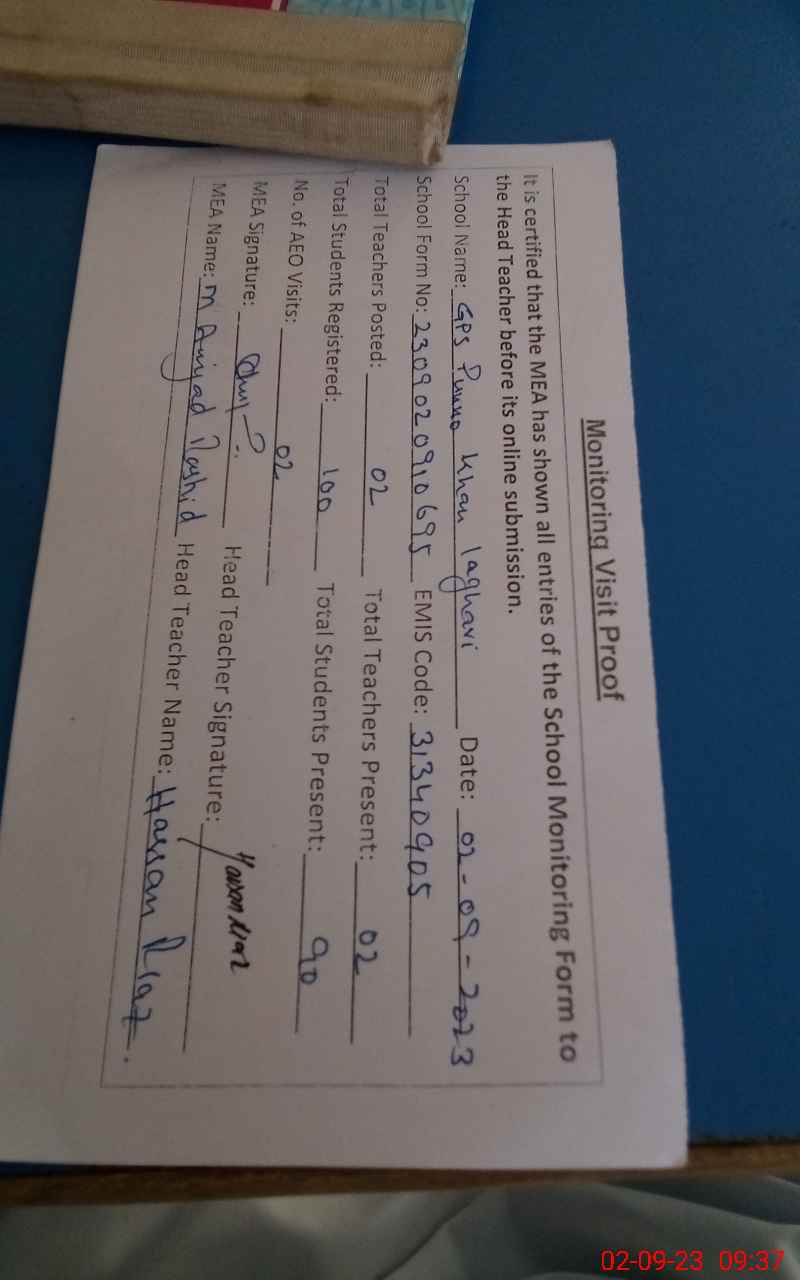 Monitoring Visit Proof
It is certified that the MEA has shown all entries of the School Monitoring Form to
the Head Teacher before its online submission.
School Name: GPS Punno Khan laghari Date: 02-09-2023
School Form No: 2309020910695 EMIS Code: 31340905
Total Teachers Posted: 02 Total Teachers Present: 02
Total Students Registered: 100 Total Students Present: 90
No. of AEO Visits: 02
MEA Signature: Head Teacher Signature: Hassan Riaz
MEA Name: M Amjad Rashid Head Teacher Name: Hassan Riaz.
02-09-23 09:37